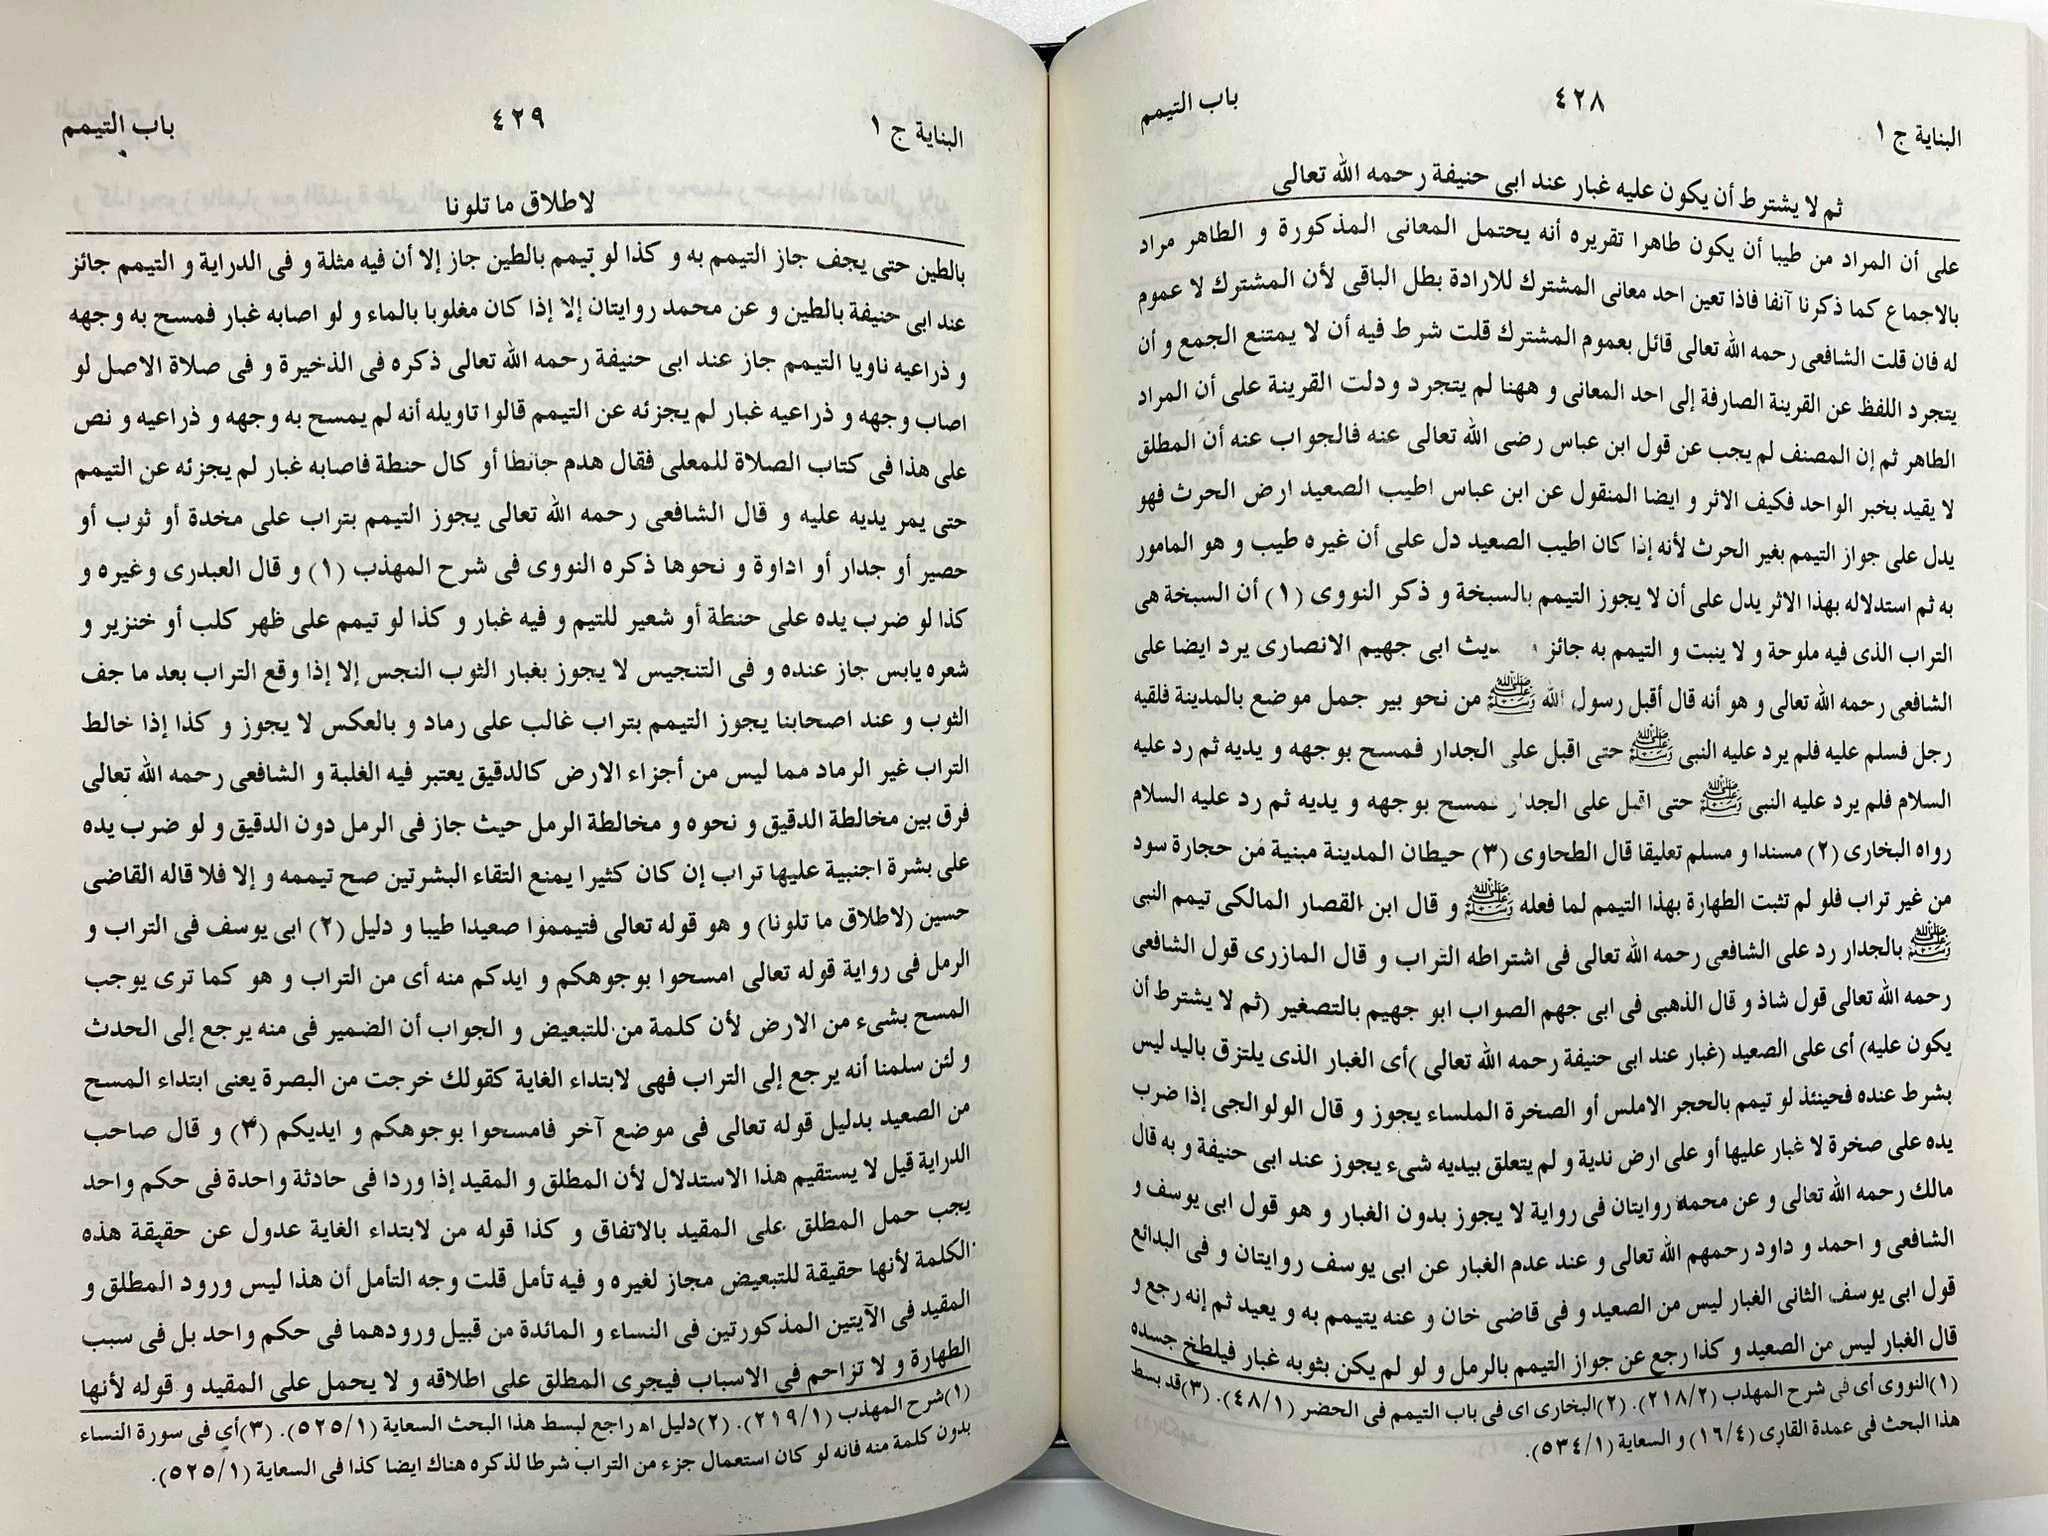 باب التيمم
٤٢٨
البناية ج ١
ثم لا يشترط أن يكون عليه غبار عند ابى حنيفة رحمه الله تعالى
على أن المراد من طيبا أن يكون طاهرا تقريره أنه يحتمل المعانى المذكورة و الطاهر مراد
بالاجماع كما ذكرنا آنفا فاذا تعين احد معانى المشترك للارادة بطل الباقى لأن المشترك لا عموم
له فان قلت الشافعى رحمه الله تعالى قائل بعموم المشترك قلت شرط فيه أن لا يمتنع الجمع و أن
يتجرد اللفظ عن القرينة الصارفة إلى احد المعانى و ههنا لم يتجرد و دلت القرينة على أن المراد
الطاهر ثم إن المصنف لم يجب عن قول ابن عباس رضى الله تعالى عنه فالجواب عنه أن المطلق
لا يقيد بخبر الواحد فكيف الاثر و ايضا المنقول عن ابن عباس اطيب الصعيد ارض الحرث فهو
يدل على جواز التيمم بغير الحرث لأنه إذا كان اطيب الصعيد دل على أن غيره طيب و هو المامور
به ثم استدلاله بهذا الاثر يدل على أن لا يجوز التيمم بالسبخة و ذكر النووى (١) أن السبخة هى
التراب الذى فيه ملوحة و لا ينبت و التيمم به جائز ديث ابى جهيم الانصارى يرد ايضا على
الشافعى رحمه الله تعالى و هو أنه قال أقبل رسول الله ﷺ من نحو بير جمل موضع بالمدينة فلقيه
رجل فسلم عليه فلم يرد عليه النبى ﷺ حتى اقبل على الجدار فمسح بوجهه و يديه ثم رد عليه
السلام فلم يرد عليه النبى ﷺ حتى اقبل على الجدار فمسح بوجهه و يديه ثم رد عليه السلام
رواه البخارى (٢) مسندا و مسلم تعليقا قال الطحاوى (٣) حيطان المدينة مبنية من حجارة سود
من غير تراب فلو لم تثبت الطهارة بهذا التيمم لما فعله ﷺ و قال ابن القصار المالكى تيمم النبى
ﷺ بالجدار رد على الشافعى رحمه الله تعالى فى اشتراطه التراب و قال المازرى قول الشافعى
رحمه الله تعالى قول شاذ و قال الذهبى فى ابى جهم الصواب ابو جهيم بالتصغير (ثم لا يشترط أن
يكون عليه) أى على الصعيد (غبار عند ابى حنيفة رحمه الله تعالى )أى الغبار الذى يلتزق باليد ليس
بشرط عنده فحينئذ لو تيمم بالحجر الاملس أو الصخرة الملساء يجوز و قال الولوالجى إذا ضرب
يده على صخرة لا غبار عليها أو على ارض ندية و لم يتعلق بيديه شىء يجوز عند ابى حنيفة و به قال
مالك رحمه الله تعالى و عن محمد روايتان فى رواية لا يجوز بدون الغبار و هو قول ابى يوسف و
الشافعى و احمد و داود رحمهم الله تعالى و عند عدم الغبار عن ابى يوسف روايتان و فى البدائع
قول ابى يوسف الثانى الغبار ليس من الصعيد و فى قاضى خان و عنه يتيمم به و يعيد ثم إنه رجع و
قال الغبار ليس من الصعيد و كذا رجع عن جواز التيمم بالرمل و لو لم يكن بثوبه غبار فيلطخ جسده
(١)النووى أى فى شرح المهذب (٢١٨/٢). (٢)البخارى اى فى باب التيمم فى الحضر (٤٨/١). (٣)قد بسط
هذا البحث فى عمدة القارى (١٦/٤) و السعاية (٥٣٤/١).
باب التيمم
٤٢٩
البناية ج ١
لاطلاق ما تلونا
بالطين حتى يجف جاز التيمم به و كذا لو تيمم بالطين جاز إلا أن فيه مثلة و فى الدراية و التيمم جائز
عند ابى حنيفة بالطين و عن محمد روايتان إلا إذا كان مغلوبا بالماء و لو اصابه غبار فمسح به وجهه
و ذراعيه ناويا التيمم جاز عند ابى حنيفة رحمه الله تعالى ذكره فى الذخيرة و فى صلاة الاصل لو
اصاب وجهه و ذراعيه غبار لم يجزئه عن التيمم قالوا تاويله أنه لم يمسح به وجهه و ذراعيه و نص
على هذا فى كتاب الصلاة للمعلى فقال هدم حائطا أو كال حنطة فاصابه غبار لم يجزئه عن التيمم
حتى يمر يديه عليه و قال الشافعى رحمه الله تعالى يجوز التيمم بتراب على مخدة أو ثوب أو
حصير أو جدار أو اداوة و نحوها ذكره النووى فى شرح المهذب (١) و قال العبدرى وغيره و
كذا لو ضرب يده على حنطة أو شعير للتيم و فيه غبار و كذا لو تيمم على ظهر كلب أو خنزير و
شعره يابس جاز عنده و فى التنجيس لا يجوز بغبار الثوب النجس إلا إذا وقع التراب بعد ما جف
الثوب و عند اصحابنا يجوز التيمم بتراب غالب على رماد و بالعكس لا يجوز و كذا إذا خالط
التراب غير الرماد مما ليس من أجزاء الارض كالدقيق يعتبر فيه الغلبة و الشافعى رحمه الله تعالى
فرق بين مخالطة الدقيق و نحوه و مخالطة الرمل حيث جاز فى الرمل دون الدقيق و لو ضرب يده
على بشرة اجنبية عليها تراب إن كان كثيرا يمنع التقاء البشرتين صح تيممه و إلا فلا قاله القاضى
حسين (لاطلاق ما تلونا) و هو قوله تعالى فتيمموا صعيدا طيبا و دليل (٢) ابى يوسف فى التراب و
الرمل فى رواية قوله تعالى امسحوا بوجوهكم و ايدكم منه أى من التراب و هو كما ترى يوجب
المسح بشىء من الارض لأن كلمة من للتبعيض و الجواب أن الضمير فى منه يرجع إلى الحدث
و لئن سلمنا أنه يرجع إلى التراب فهى لابتداء الغاية كقولك خرجت من البصرة يعنى ابتداء المسح
من الصعيد بدليل قوله تعالى فى موضع آخر فامسحوا بوجوهكم و ايديكم (٣) و قال صاحب
الدراية قيل لا يستقيم هذا الاستدلال لأن المطلق و المقيد إذا وردا فى حادثة واحدة فى حكم واحد
يجب حمل المطلق على المقيد بالاتفاق و كذا قوله من لابتداء الغاية عدول عن حقيقة هذه
الكلمة لأنها حقيقة للتبعيض مجاز لغيره و فيه تأمل قلت وجه التأمل أن هذا ليس ورود المطلق و
المقيد فى الآيتين المذكورتين فى النساء و المائدة من قبيل ورودهما فى حكم واحد بل فى سبب
الطهارة و لا تزاحم فى الاسباب فيجرى المطلق على اطلاقه و لا يحمل على المقيد و قوله لأنها
(١)شرح المهذب (٢١٩/١). (٢)دليل اه راجع لبسط هذا البحث السعاية (٥٢٥/١). (٣)أى فى سورة النساء
بدون كلمة منه فانه لو كان استعمال جزء من التراب شرطا لذكره هناك ايضا كذا فى السعاية (٥٢٥/١).